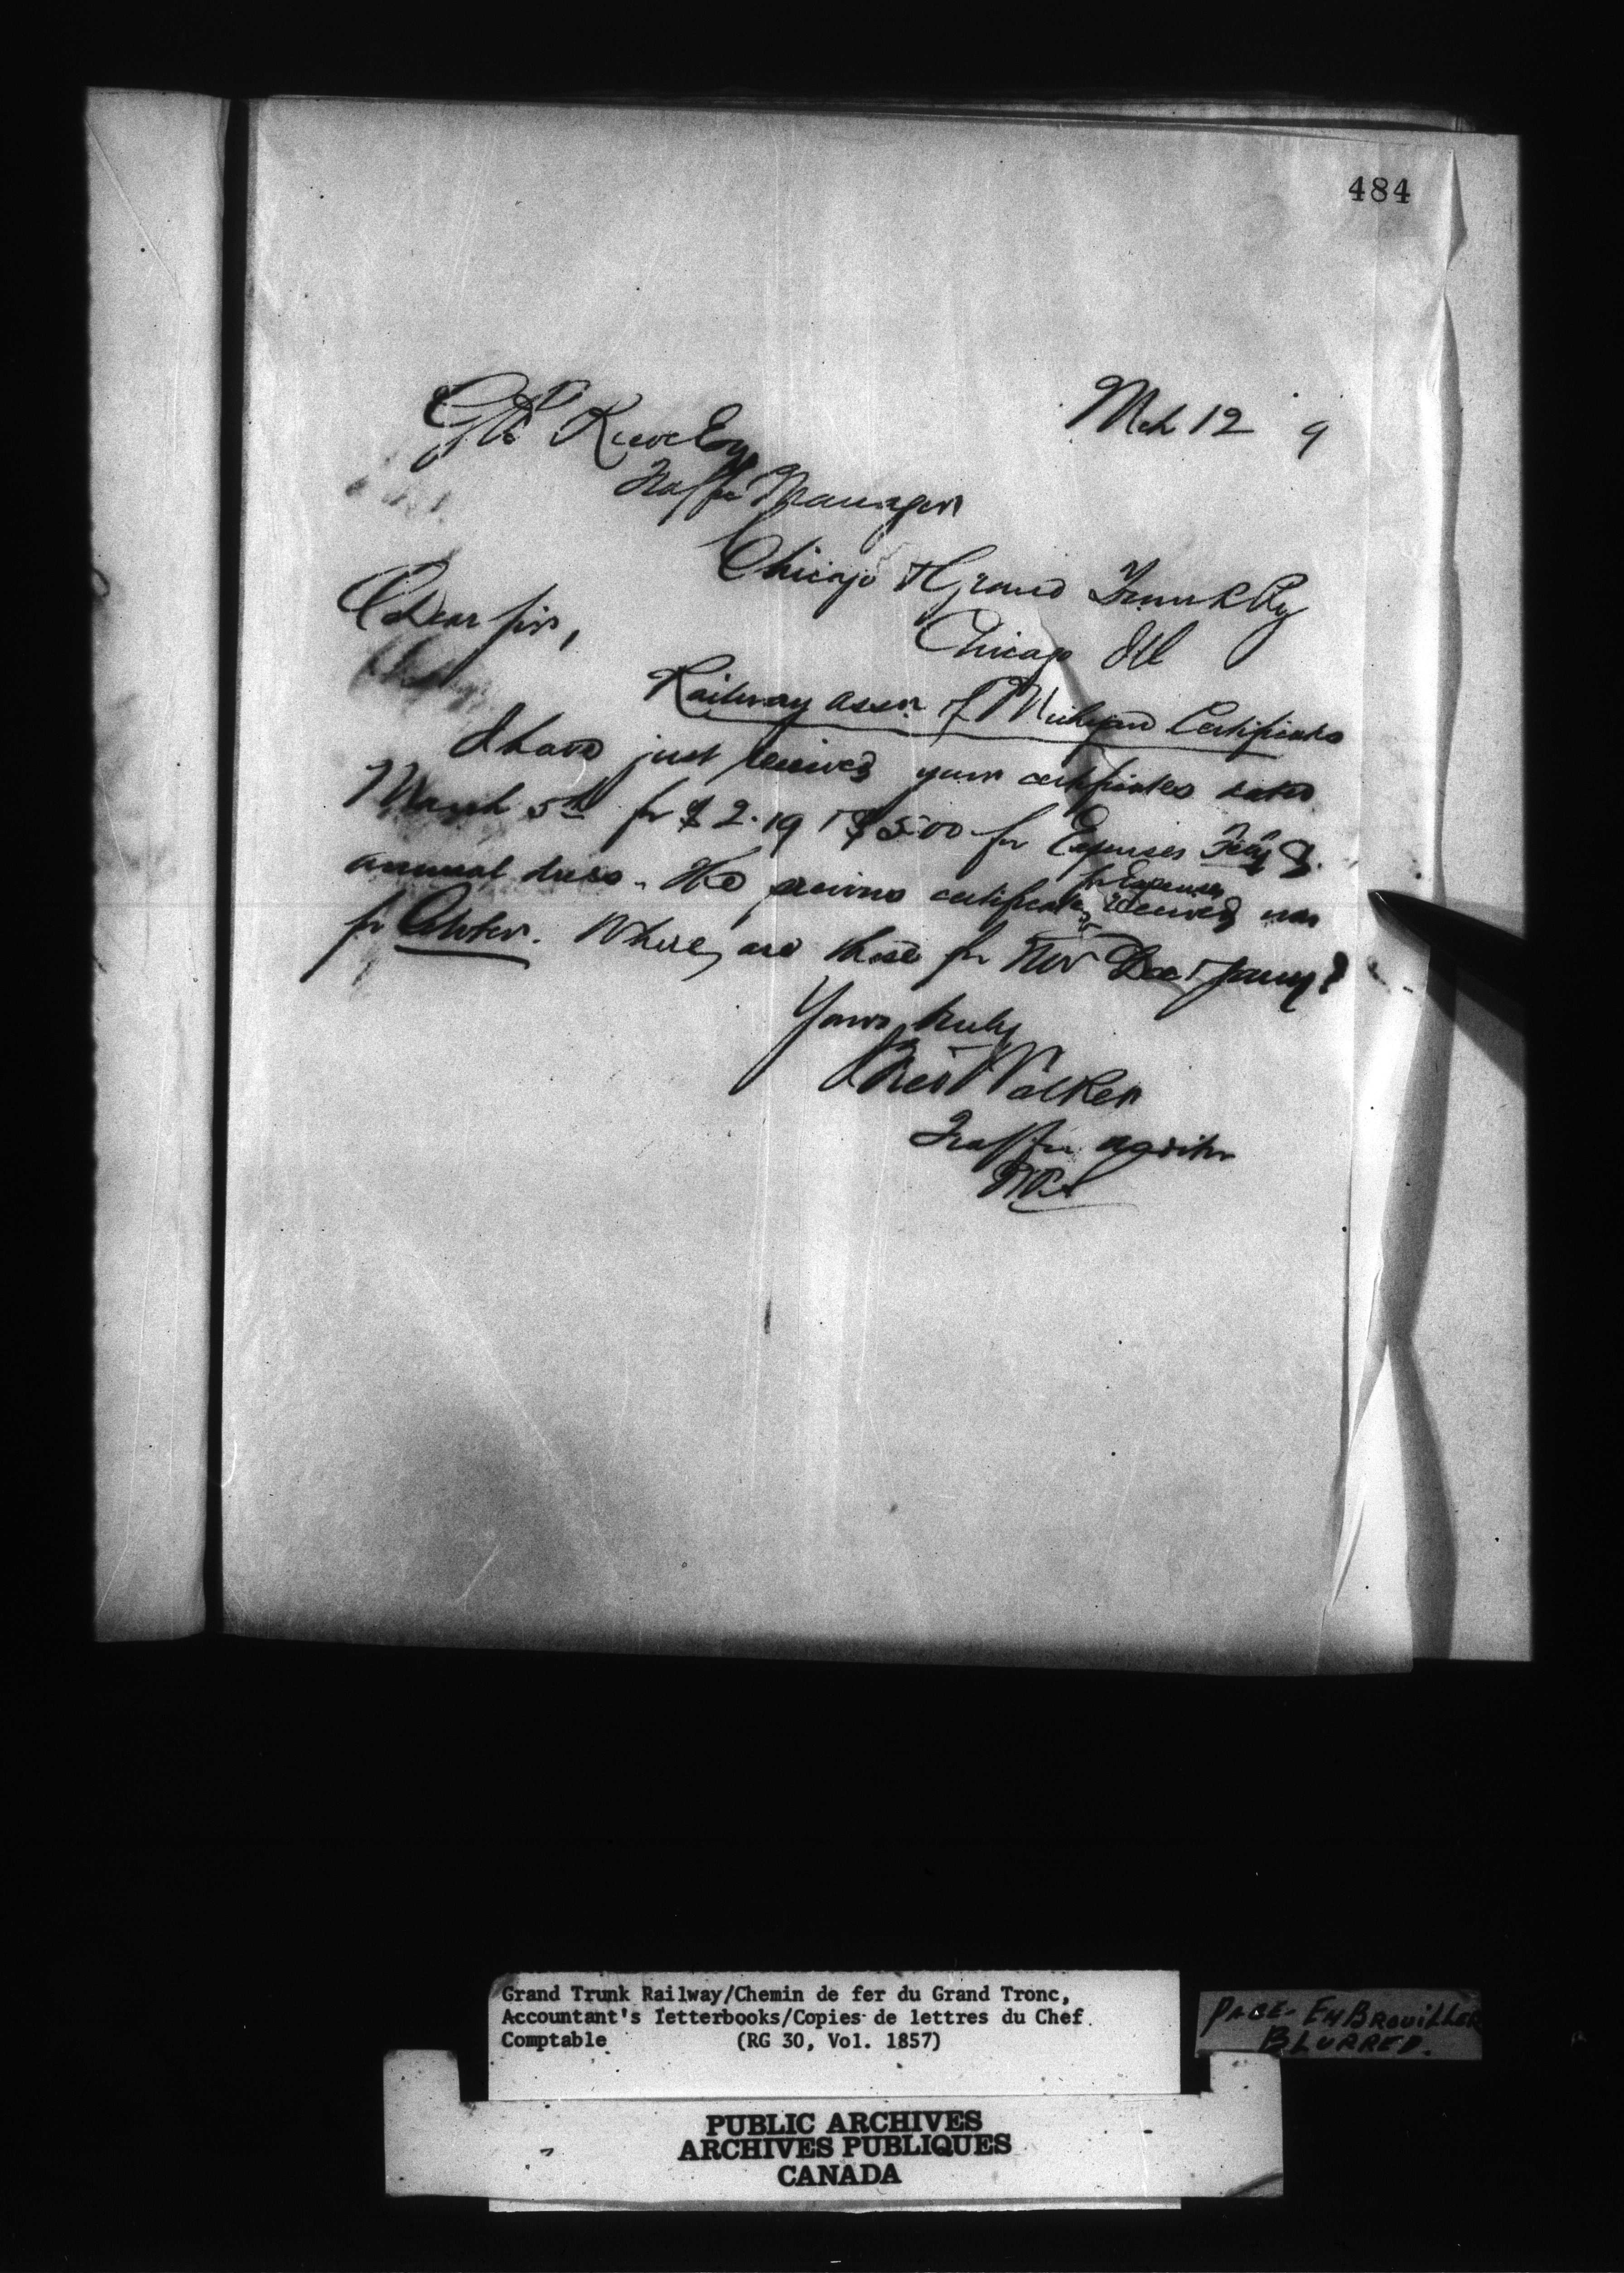 484
Mch 12 9
Geo B Reeve Esq
Traffic Manager
Chicago & Grand Trunk Ry
Chicago Ill
Dear Sir,
Railway Assn of Michigan Certificates
I have just received your certificates dated
March 5th for $2.19 & $5.00 for Expenses Feby &
annual dues. The previous certificate for Expenses received was
for October. Where are those for Nov Dec & Jany?
Yours truly
Walker
Traffic Auditor
Grand Trunk Railway/Chemin de fer du Grand Tronc,
Accountant's letterbooks/Copies de lettres du Chef
Comptable (RG 30, Vol. 1857)
PAGE- EMBROUILLER
BLURRED.
PUBLIC ARCHIVES
ARCHIVES PUBLIQUES
CANADA